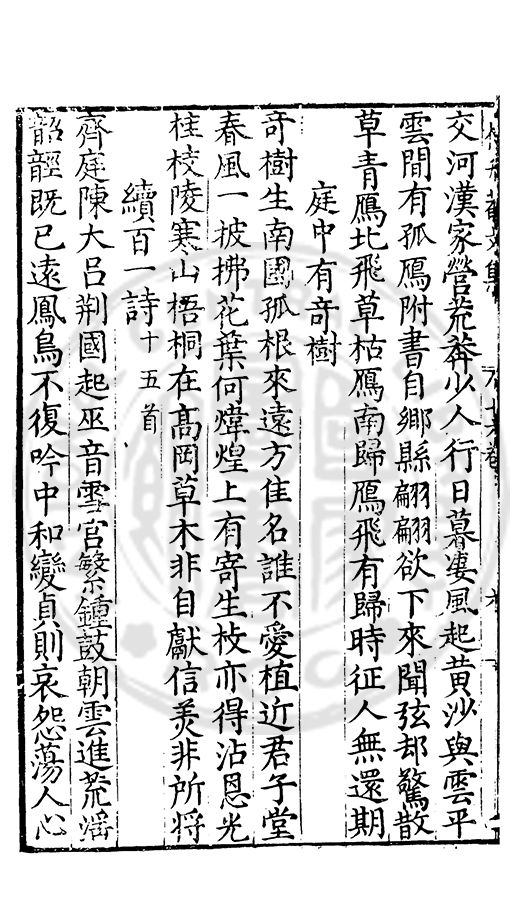 交河漢家營荒莽少人行日暮淒風起黄沙與雲平
雲間有孤鴈附書自鄉縣翩翩欲下來聞弦却驚散
草青鴈北飛草枯鴈南歸鴈飛有歸時征人無還期
庭中有竒樹
竒樹生南國孤根來遠方佳名誰不愛植近君子堂
春風一披拂花葉何煒煌上有寄生枝亦得沾恩光
桂棱陵寒山梧桐在髙岡草木非自獻信羙非所将
續百一詩十五首
齊庭陳大吕荆國起巫音雪宫繁鍾鼓朝雲進荒滛
韶頀既已遠鳳鳥不復吟中和變貞則哀怨蕩人心